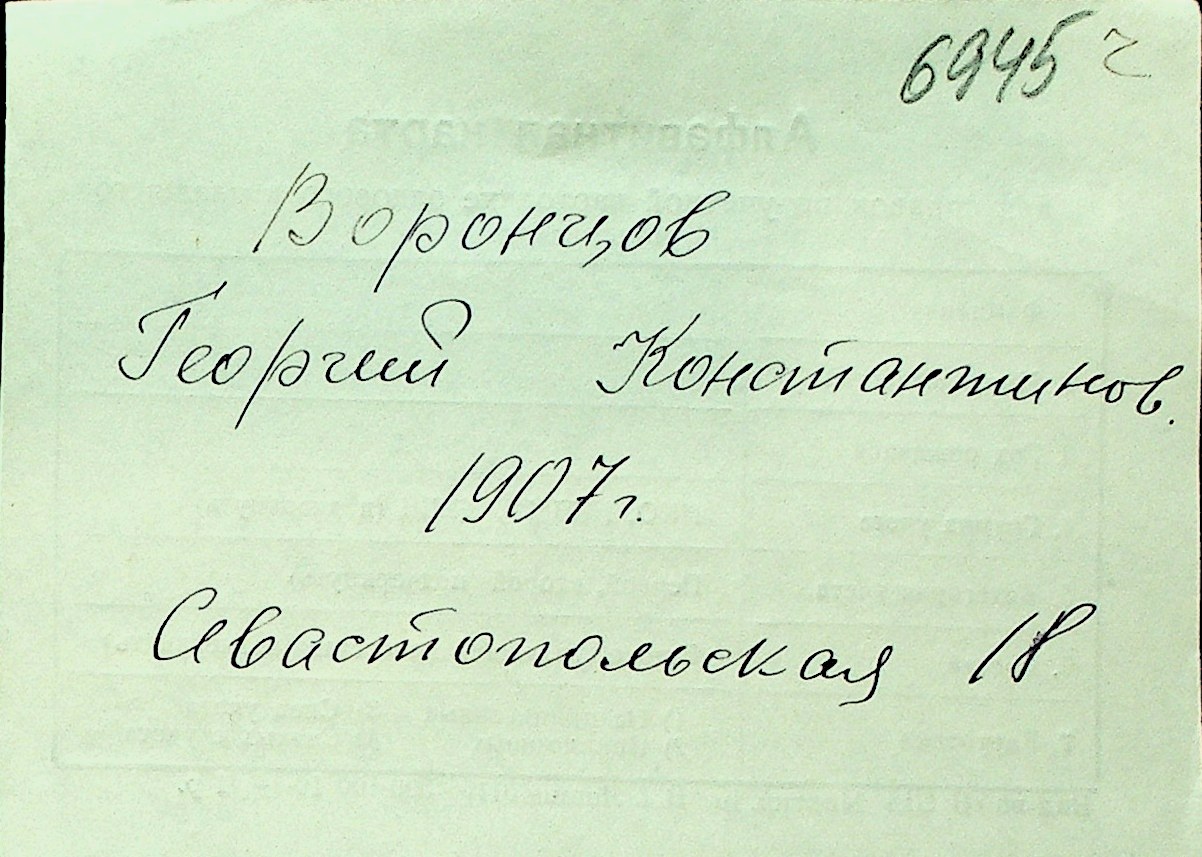 6945 г
Воронцов
Георгий Константинов.
1907 г.
Севастопольская 18